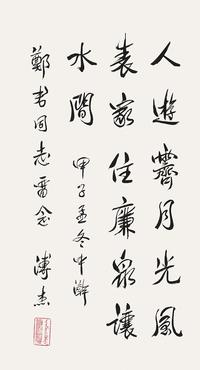 人遊霽月光風
表家住廉泉讓
水間 甲子孟冬中澣
鄭書同志留念 溥杰